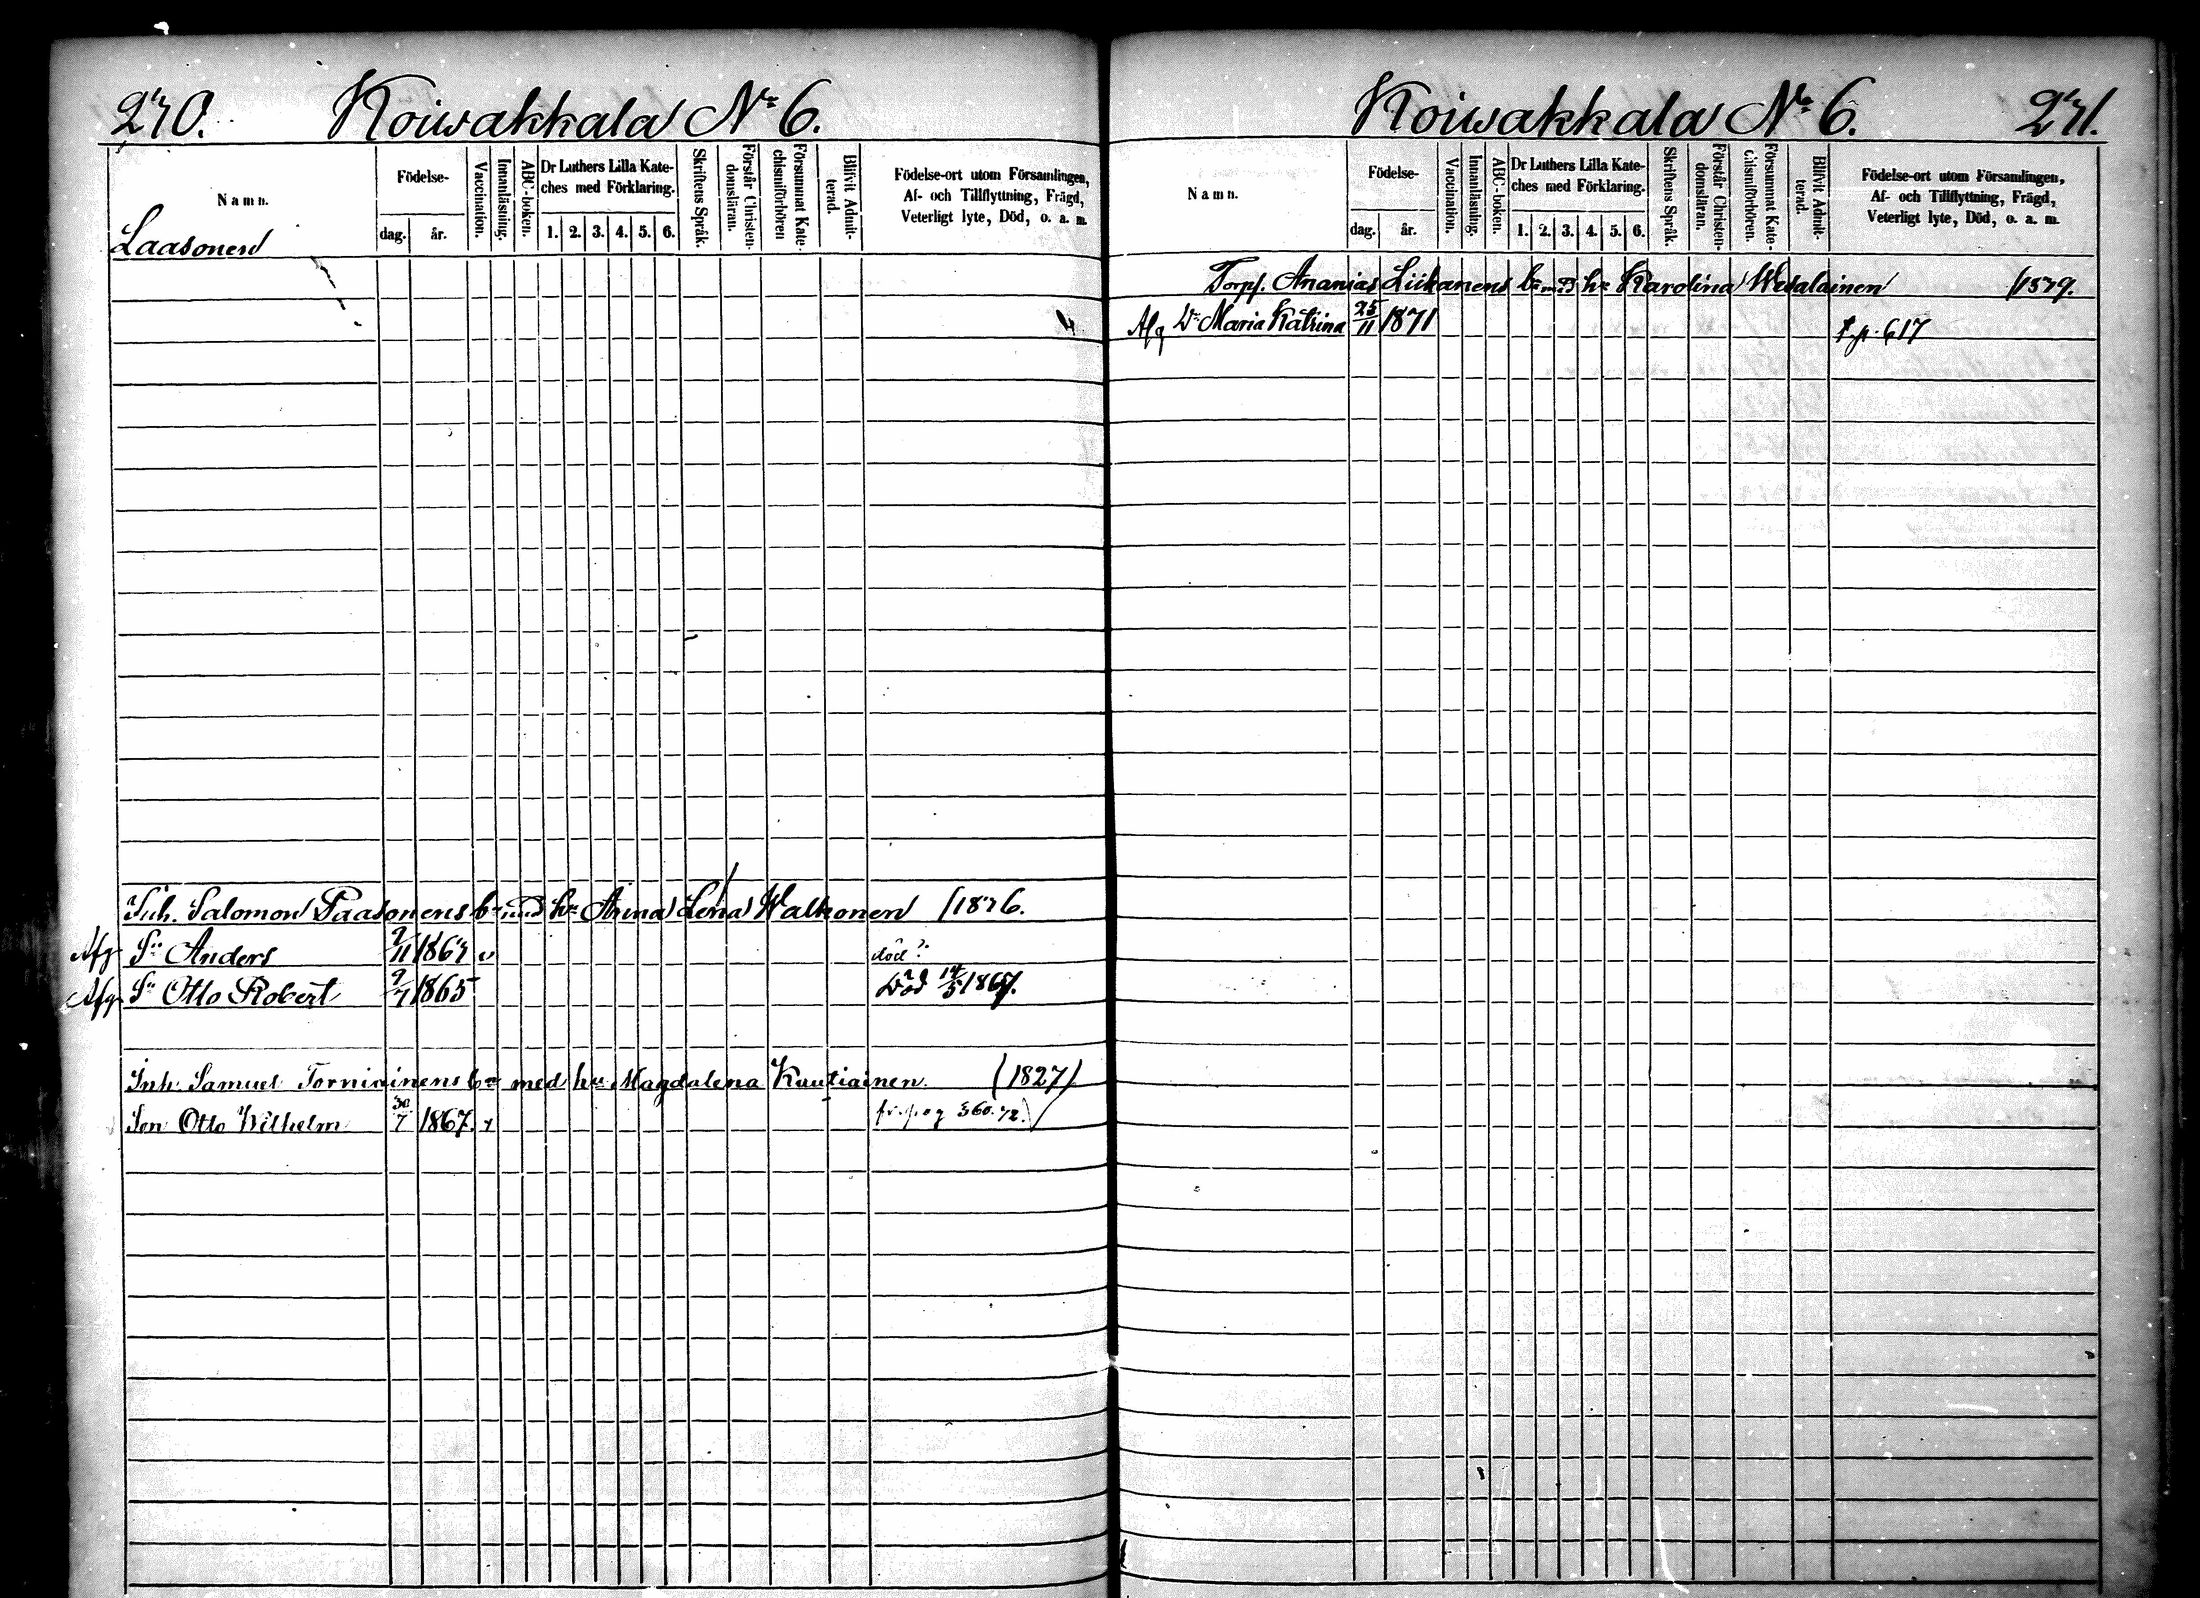 270. Koiwakkala No 6.
Namn.
Födelse-
dag. år.
Vaccination.
Innanläsning.
ABC-boken.
Dr Luthers Lilla Kate-
ches med Förklaring.
1. 2. 3. 4. 5. 6.
Skriftens Språk.
Förstår Christen-
domsläran.
Försummat Kate-
chismiförhören
Blifvit Admit-
terad.
Födelse-ort utom Församlingen,
Af- och Tillflyttning, Frägd,
Veterligt lyte, Död, o. a. m.
Laasonen
Inh. Salomon Paasonens bn med hu Anna Lena Walkonen /1876.
Afg Sn Anders 2/11 1867 v död?
Afg Sn Otto Robert 2/7 1865 Död 14/5 1867.
Inh. Samuel Torniainens bn med hu Magdalena Kautiainen. (1827)
Son Otto Wilhelm 30/7 1867. v fr. pag 360. 72.
Koiwakkala No 6. 271.
Namn.
Födelse-
dag. år.
Vaccination.
Innanläsning.
ABC-boken.
Dr Luthers Lilla Kate-
ches med Förklaring.
1. 2. 3. 4. 5. 6.
Skriftens Språk.
Förstår Christen-
domsläran.
Försummat Kate-
chismiförhören.
Blifvit Admit-
terad.
Födelse-ort utom Församlingen,
Af- och Tillflyttning, Frägd,
Veterligt lyte, Död, o. a. m.
Torp. Ananias Liikanens bn md hu Karolina Wesalainen /1579.
Afg Dr Maria Katrina 25/11 1871 t. p. 617